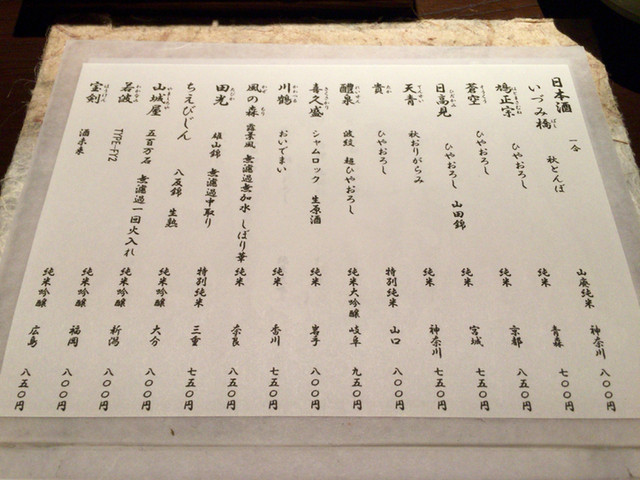 日本酒 一合
いづみ橋 秋とんぼ 山廃純米 神奈川 八〇〇円
鳩正宗 ひやおろし 純米 青森 七〇〇円
蒼空 ひやおろし 純米 京都 八五〇円
日高見 ひやおろし 山田錦 純米 宮城 七五〇円
天青 秋おりがらみ 純米 神奈川 七五〇円
貴 ひやおろし 特別純米 山口 八〇〇円
醴泉 波紋 超ひやおろし 純米大吟醸 岐阜 九五〇円
喜久盛 シャムロック 生原酒 純米 岩手 八〇〇円
川鶴 おいでまい 純米 香川 七五〇円
風の森 露葉風 無濾過無加水 しぼり華 純米 奈良 八五〇円
田光 雄山錦 無濾過中取り 特別純米 三重 七五〇円
ちえびじん 八反錦 生熟 純米吟醸 大分 八〇〇円
山城屋 五百万石 純米吟醸 新潟 八〇〇円
若波 TYPE-FY2 無濾過一回火入れ 純米吟醸 福岡 八〇〇円
宝剣 酒未来 純米吟醸 広島 八五〇円